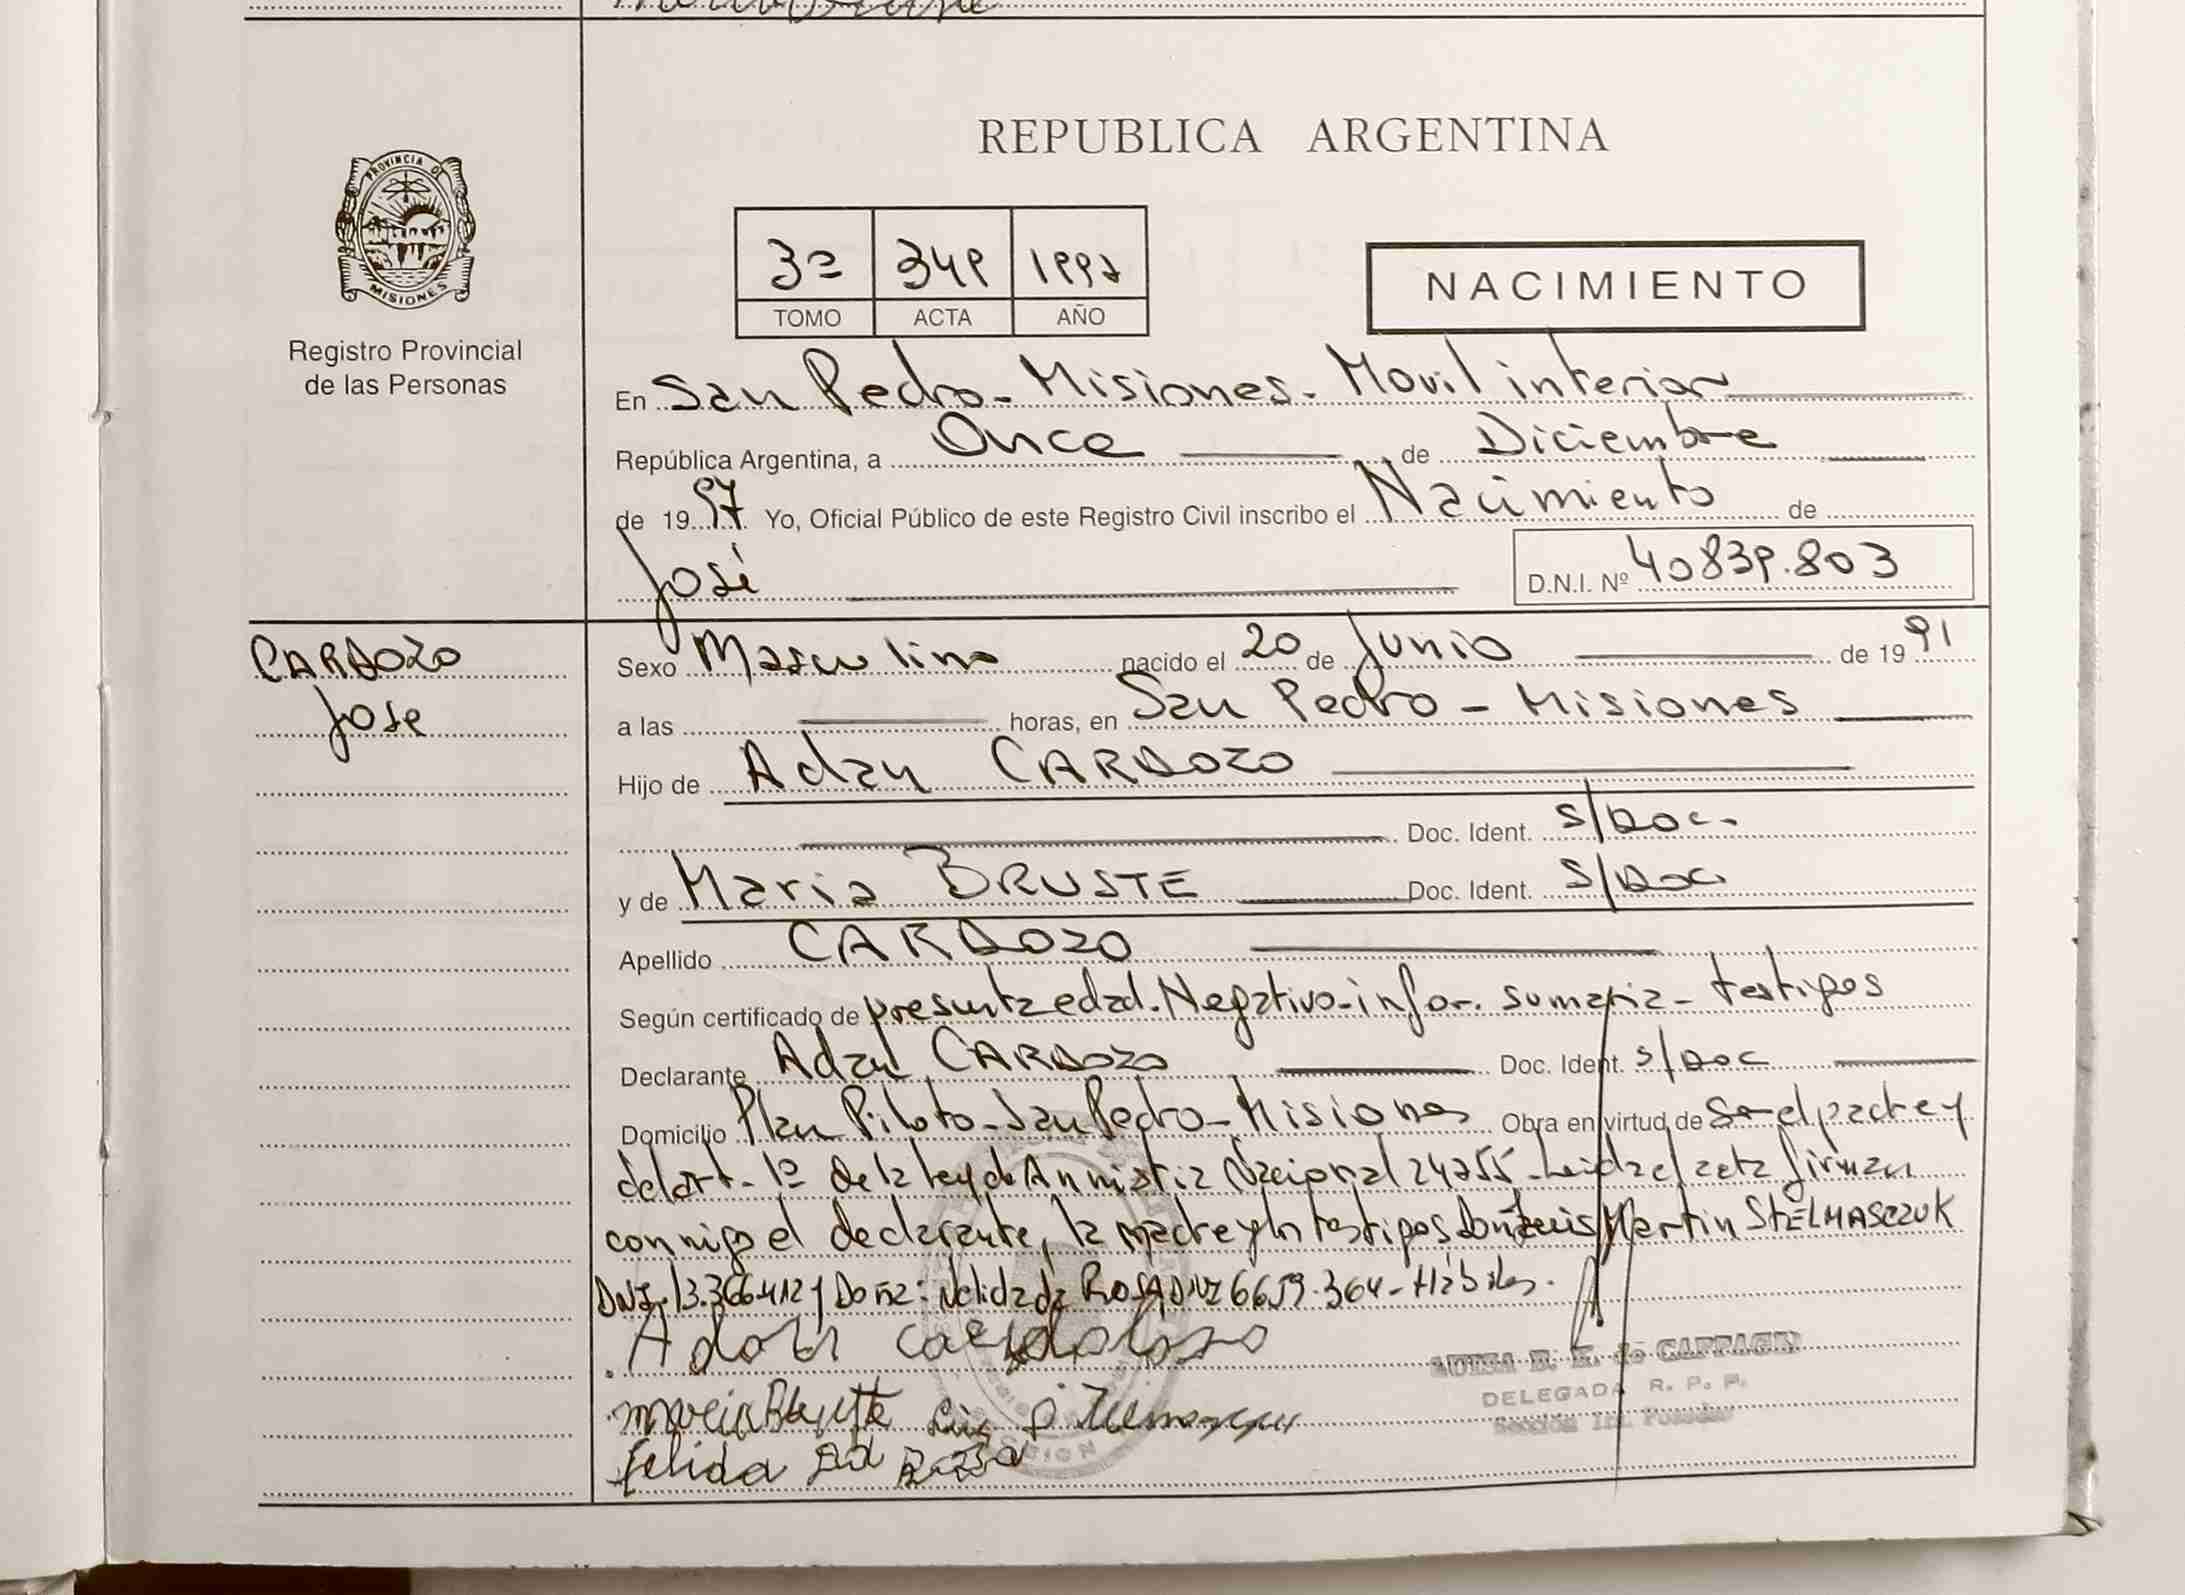 REPUBLICA ARGENTINA
PROVINCIA DE
MISIONES
Registro Provincial
de las Personas
3º 349 1997
TOMO ACTA AÑO
NACIMIENTO
En San Pedro - Misiones - Movil interior
República Argentina, a Once de Diciembre
de 1997 Yo, Oficial Público de este Registro Civil inscribo el Nacimiento de
José D.N.I. Nº 40839.803
CARDOZO
Jose
Sexo Masculino nacido el 20 de Junio de 1991
a las horas, en San Pedro - Misiones
Hijo de Adan CARDOZO
Doc. Ident. S/Doc.
y de Maria BRUSTE Doc. Ident. S/Doc
Apellido CARDOZO
Según certificado de presunta edad. Negativo - infor. sumaria - testigos
Declarante Adan CARDOZO Doc. Ident. s/Doc
Domicilio Plan Piloto - San Pedro - Misiones Obra en virtud de
del art. 1º de la ley de Amnistia Nacional 24755 - Leida el acta firman
conmigo el declarante, la madre y los testigos Martin STELMASCZUK
DNI. 13.366.412 y Doña: Nelida da ROSA DNI 6659.364 - Hábiles.
DELEGADA R. P. P.